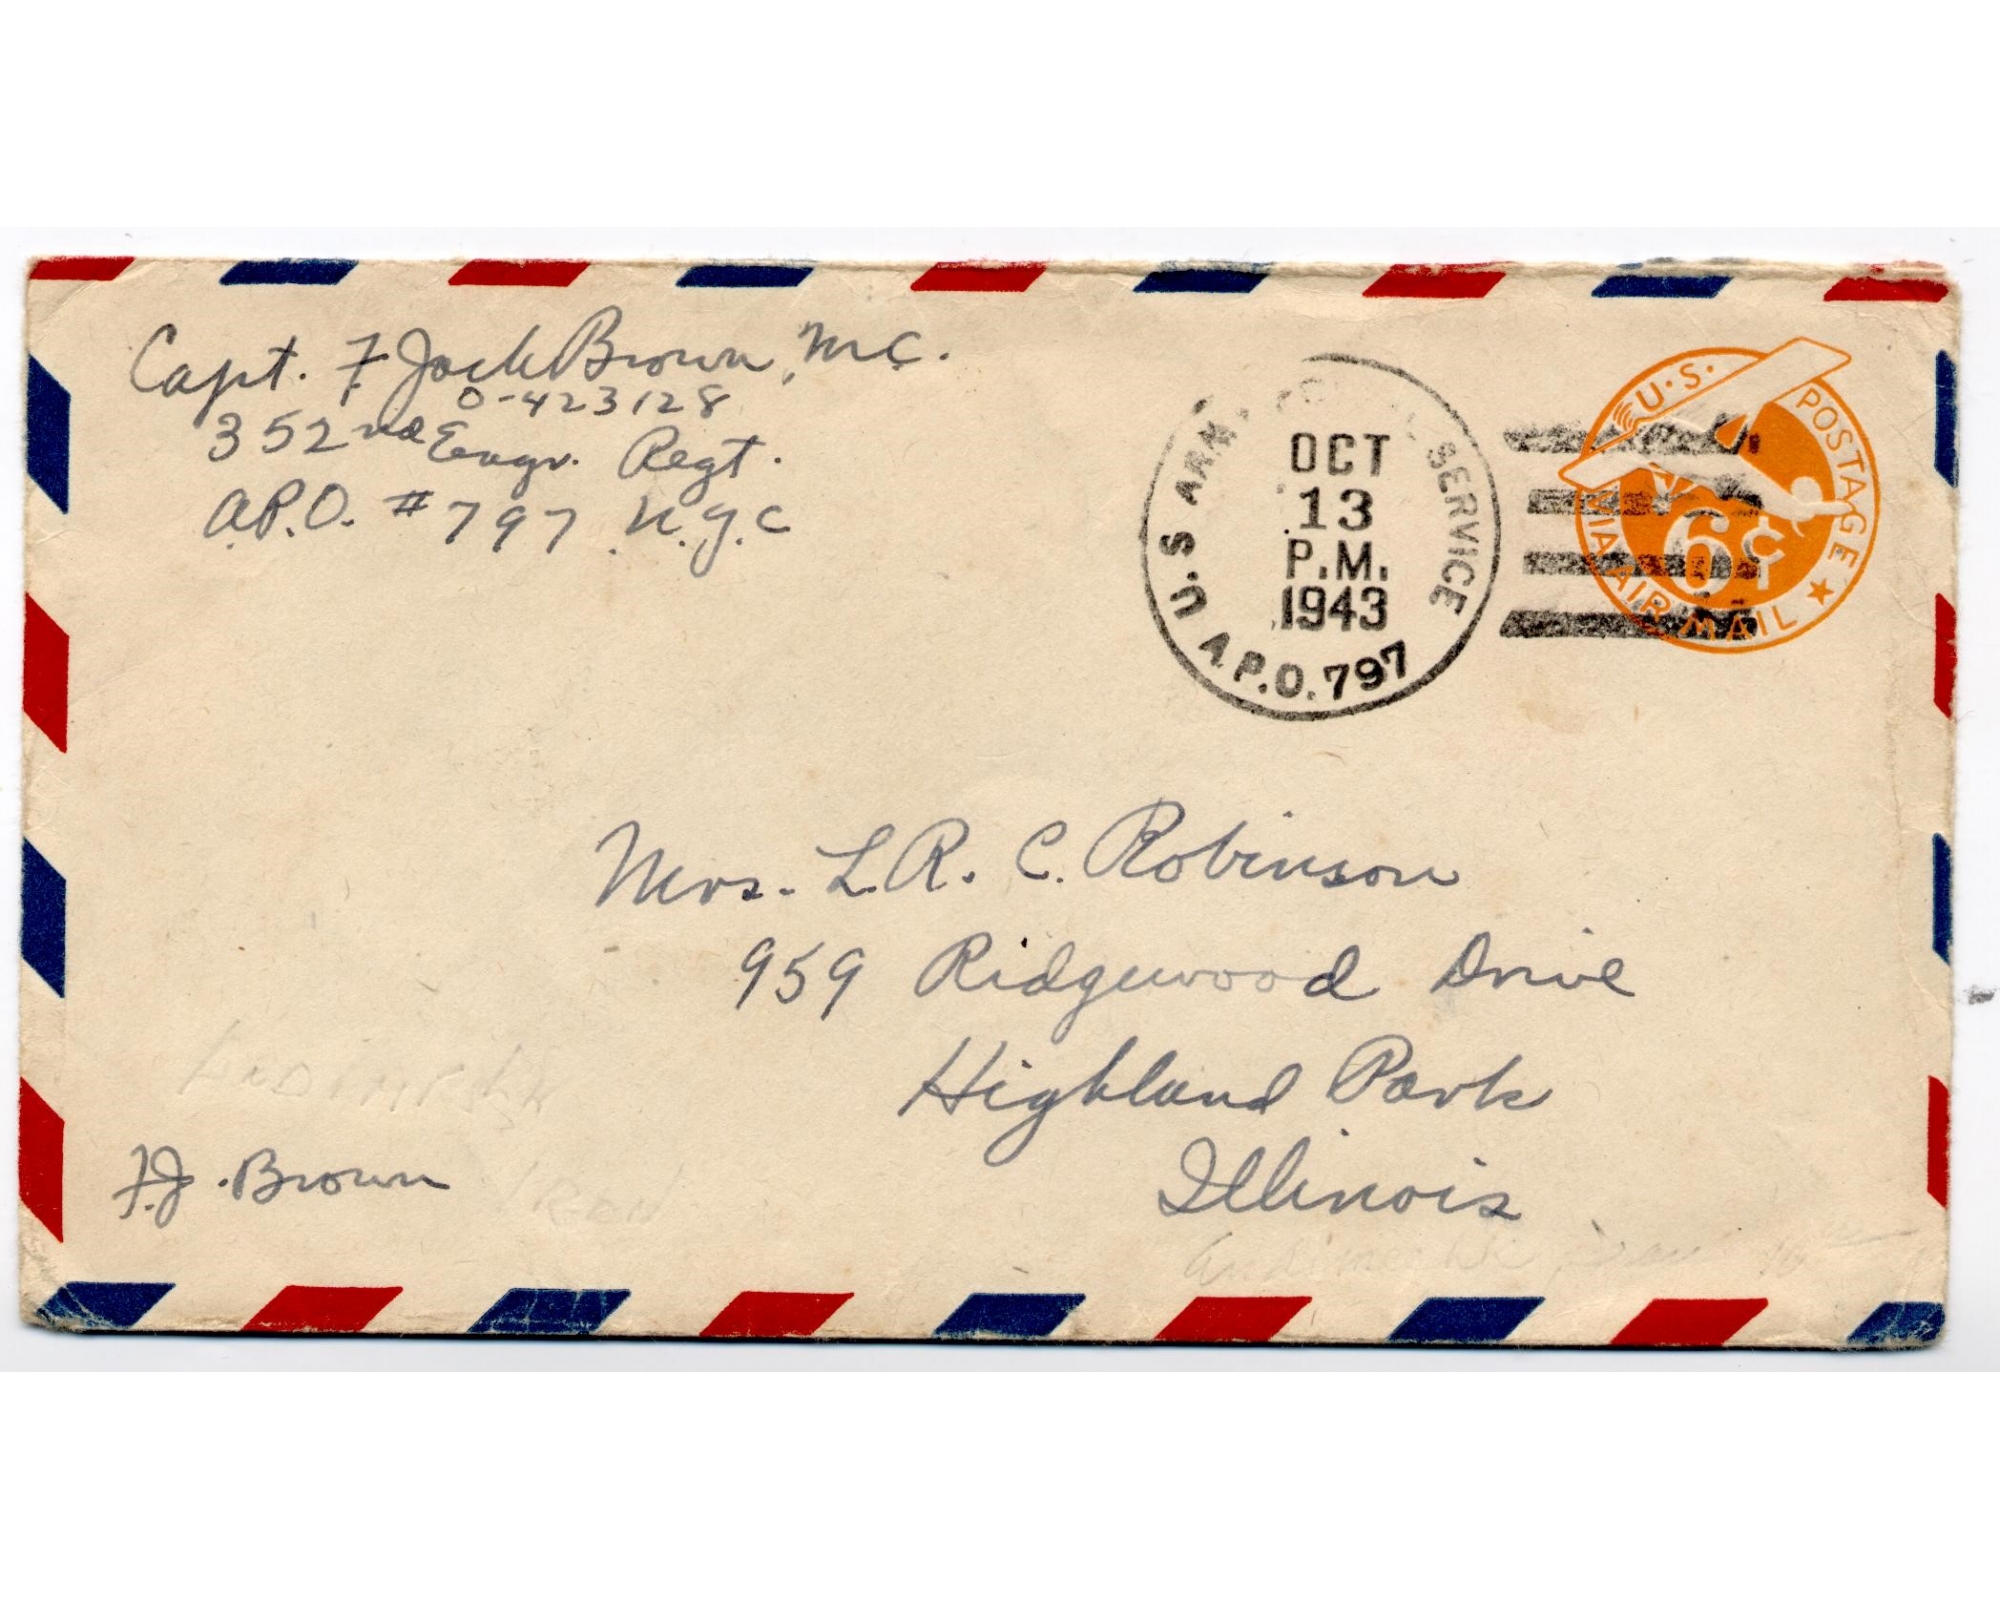 Capt. F. Jack Brown, M.C.
O-423128
352nd Engr. Regt.
A.P.O. #797 N.Y.C
U.S ARMY POSTAL SERVICE
OCT
13
P.M.
1943
A.P.O. 797
U.S. POSTAGE
6¢
VIA AIR MAIL
Mrs. L.R.C. Robinson
959 Ridgewood Drive
Highland Park
Illinois
ANDIMESHK
IRAN
F.J. Brown
Andimeshk